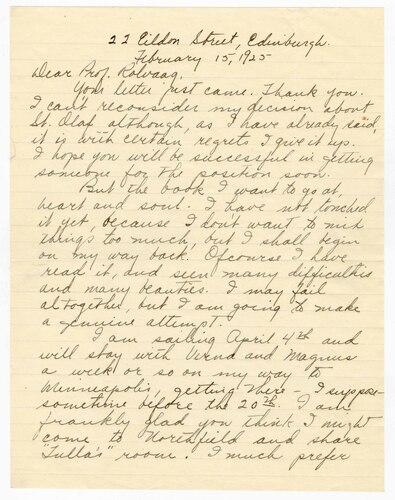 22 Eildon Street, Edinburgh.
February 15, 1925
Dear Prof. Rolvaag,
Your letter just came. Thank you.
I can't reconsider my decision about
St. Olaf although, as I have already said,
it is with certain regrets I give it up.
I hope you will be successful in getting
someone for the position soon.
But the book I want to go at,
heart and soul. I have not touched
it yet, because I don't want to mix
things too much, but I shall begin
on my way back. Ofcourse I have
read it, and seen many difficulties
and many beauties. I may fail
altogether, but I am going to make
a genuine attempt.
I am sailing April 4th and
will stay with Verna and Magnus
a week or so on my way to
Minneapolis, getting there - I suppose -
sometime before the 20th. I am
frankly glad you think I might
come to Northfield and share
"Tulla's" room. I much prefer